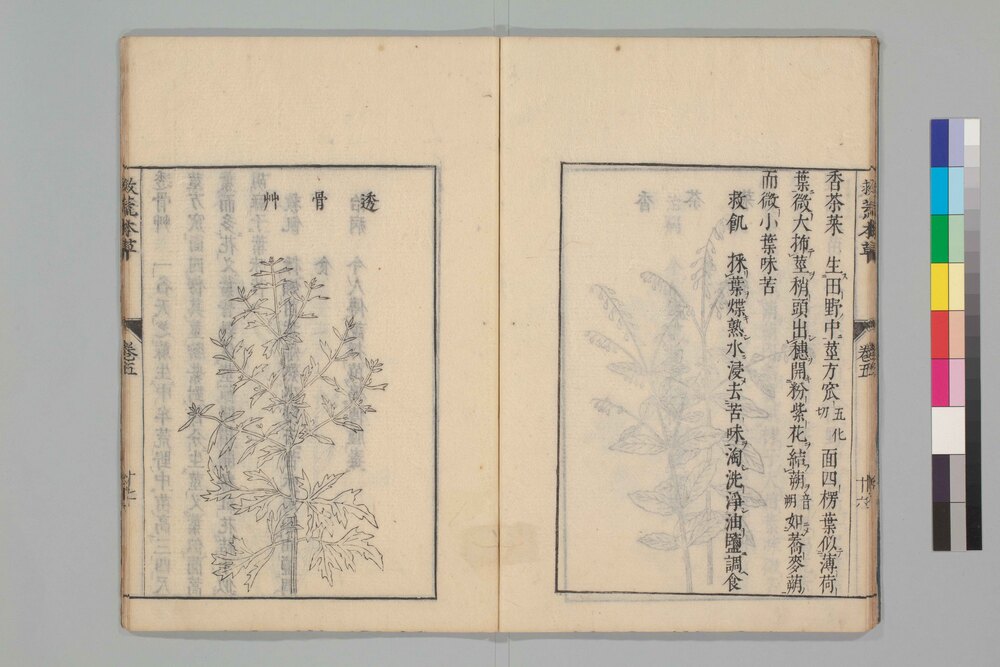 救荒本草
卷五
香茶菜 生田野中莖方窊五化切面四楞葉似薄荷
葉微大抪莖稍頭出穗開粉紫花結蒴音朔如蕎麥蒴
而微小葉味苦
救飢 採葉煠熟水浸去苦味淘洗淨油鹽調食
透骨艸
救荒本草
卷五